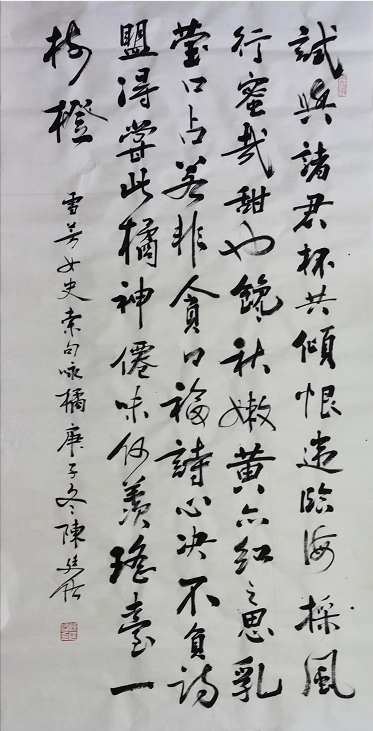 試與諸君杯共傾恨違臨海採風
行蜜哉甜也饞秋嫩黃亦紅之思乳
口占若非貪口福詩心決不負詩
盟得嘗此橘神僊味何羨瑤臺一
樹橙
雪芳女史索句咏橘庚子冬陳廷佑